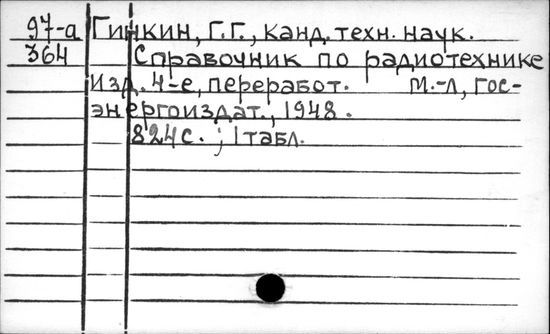 97-а Гинкин, Г.Г., канд. техн. наук.
364 Справочник по радиотехнике
Изд. 4-е, переработ. М.-Л, Гос-
энергоиздат., 1948.
824 с. ; 1 табл.